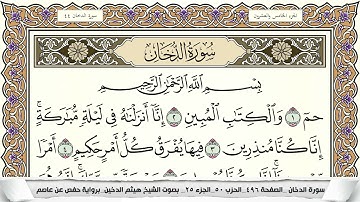 الجزء الخامس والعشرون
سورة الدخان ٤٤
سُورَةُ الدُّخَانِ
بِسْمِ اللَّهِ الرَّحْمَٰنِ الرَّحِيمِ
حمٓ ١ وَالْكِتَابِ الْمُبِينِ ٢ إِنَّا أَنزَلْنَاهُ فِي لَيْلَةٍ مُّبَارَكَةٍ ۚ
إِنَّا كُنَّا مُنذِرِينَ ٣ فِيهَا يُفْرَقُ كُلُّ أَمْرٍ حَكِيمٍ ٤ أَمْرًا
سورة الدخان _الصفحة ٤٩٦_ الحزب ٥٠_ الجزء ٢٥_ بصوت الشيخ هيثم الدخين_ برواية حفص عن عاصم